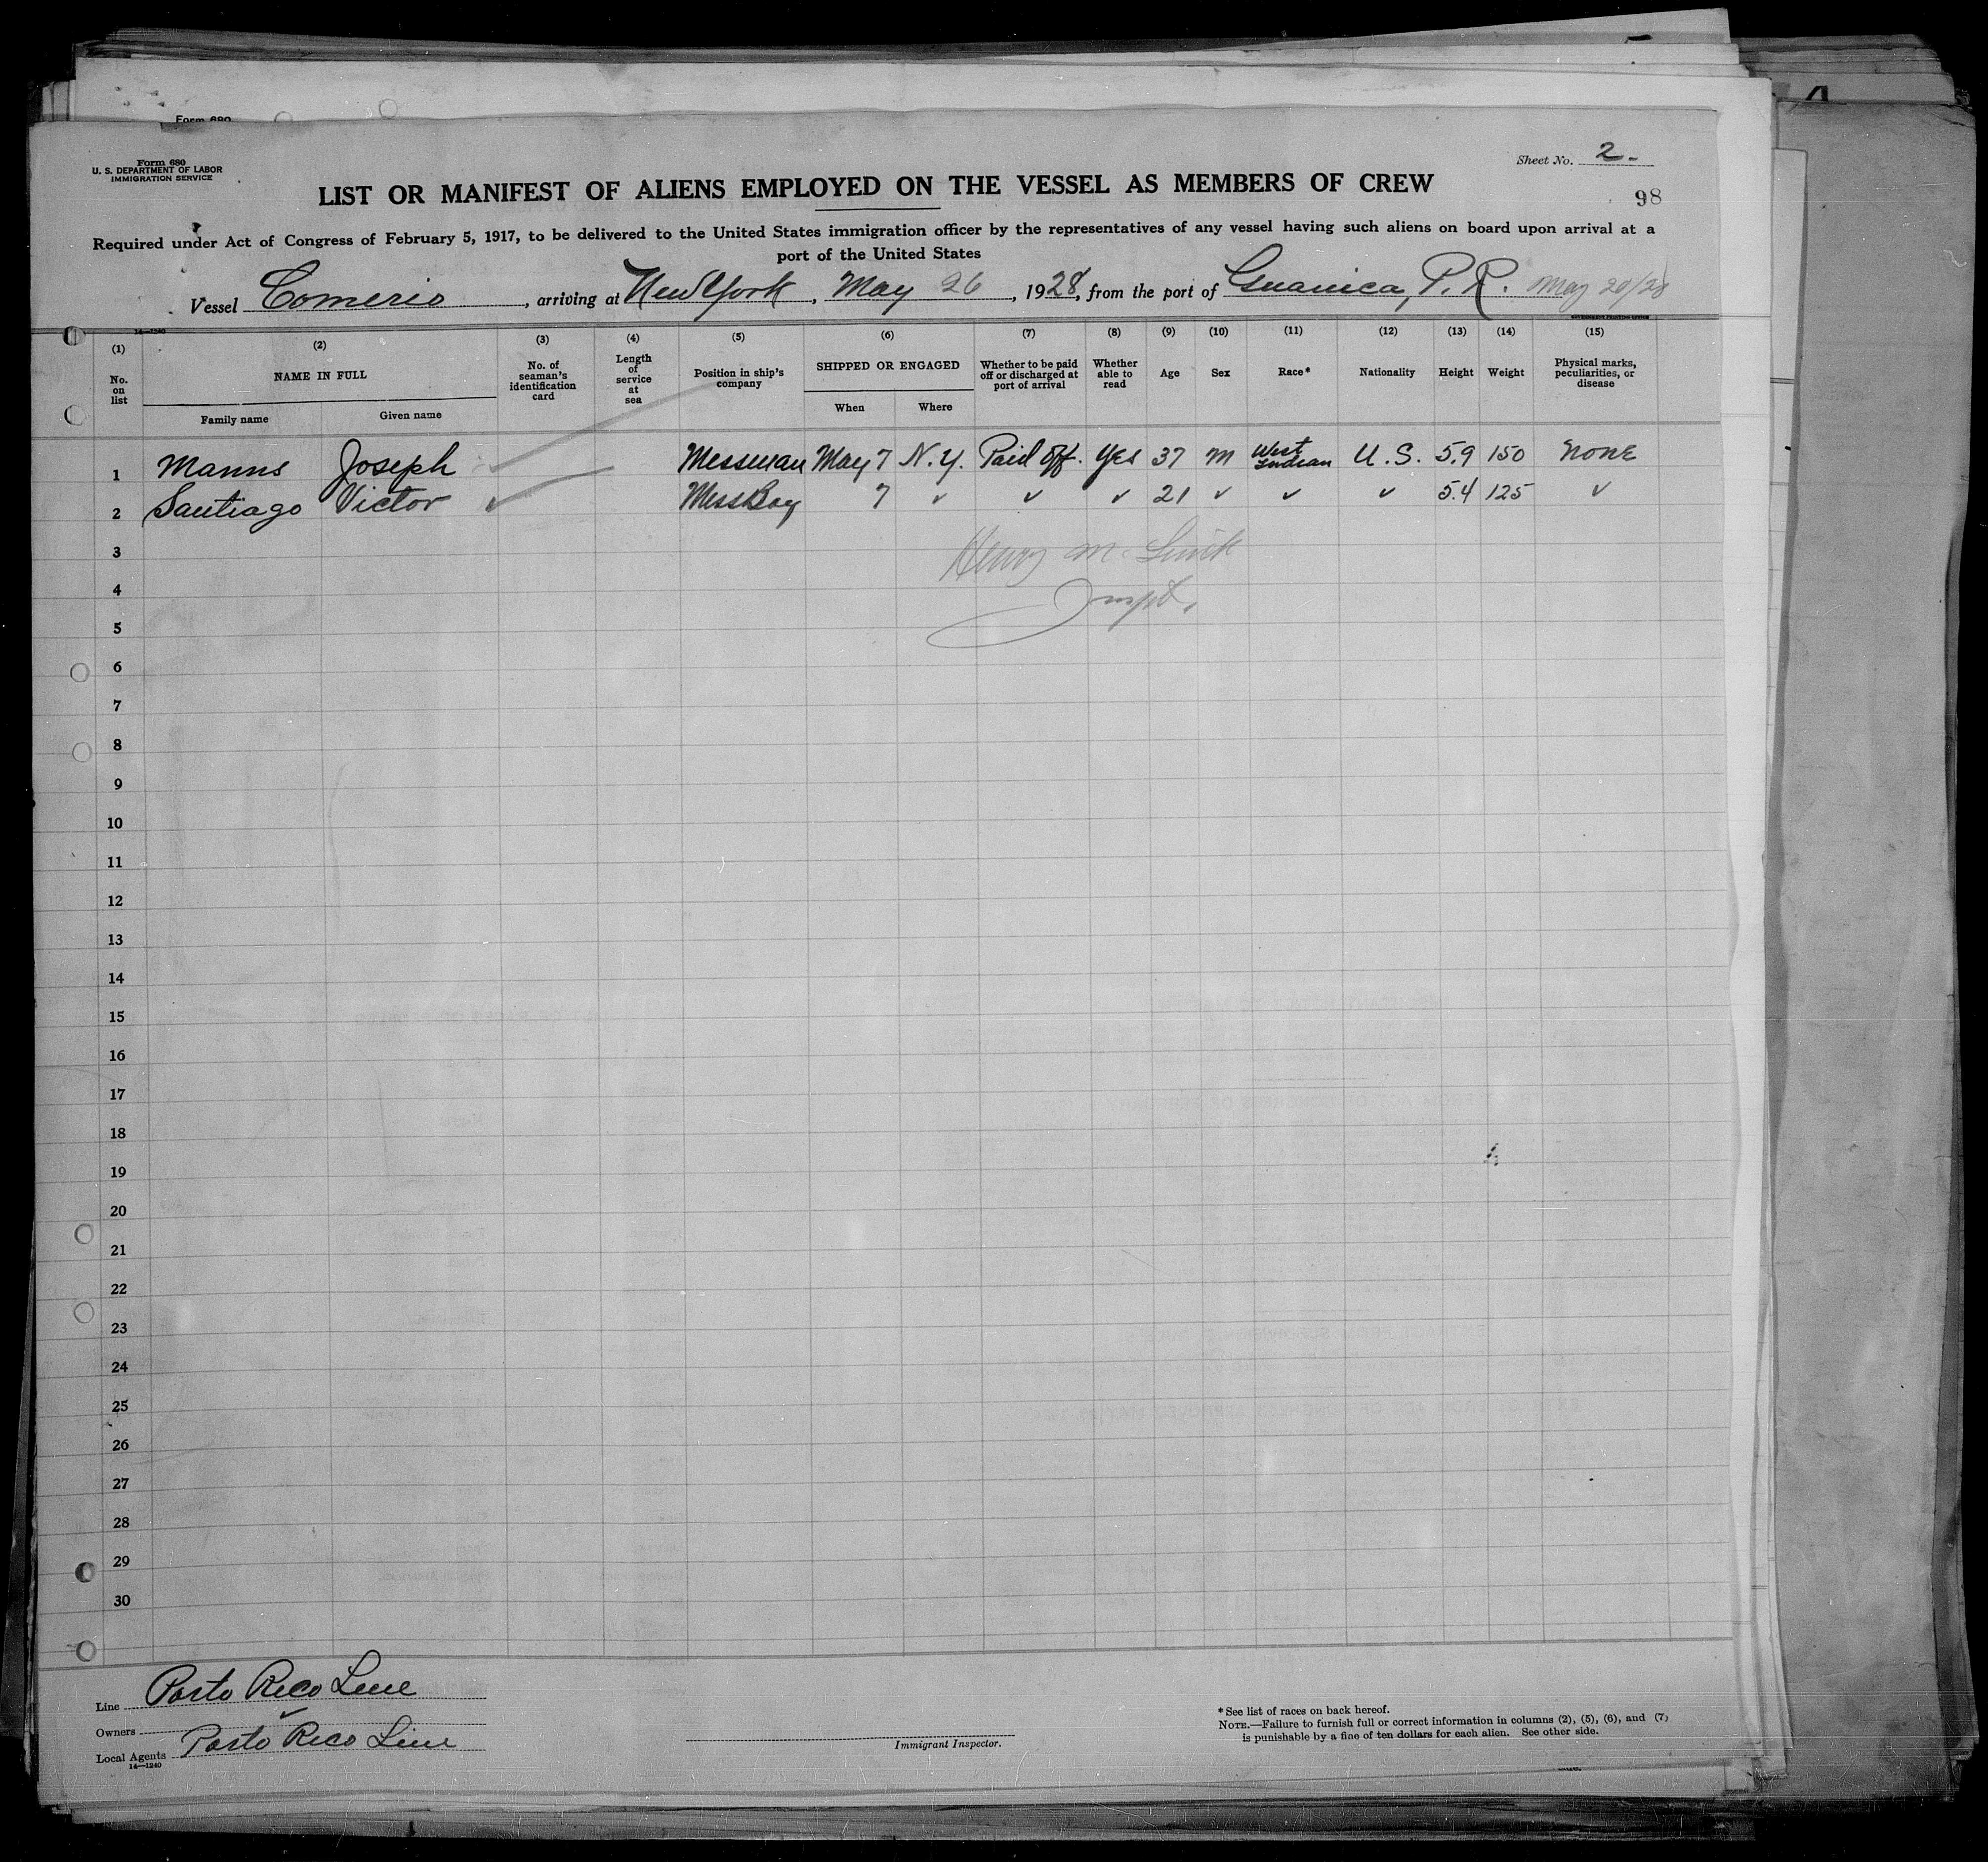 Form 690
Form 680
U. S. DEPARTMENT OF LABOR
IMMIGRATION SERVICE
Sheet No. 2.
98
LIST OR MANIFEST OF ALIENS EMPLOYED ON THE VESSEL AS MEMBERS OF CREW
Required under Act of Congress of February 5, 1917, to be delivered to the United States immigration officer by the representatives of any vessel having such aliens on board upon arrival at a
port of the United States
Vessel Comerio, arriving at New York, May 26, 1928, from the port of Guanica, P.R. May 20/28
14—1240
(1) No. on list
(2) NAME IN FULL
Family name Given name
(3) No. of seaman's identification card
(4) Length of service at sea
(5) Position in ship's company
(6) SHIPPED OR ENGAGED
When Where
(7) Whether to be paid off or discharged at port of arrival
(8) Whether able to read
(9) Age
(10) Sex
(11) Race*
(12) Nationality
(13) Height
(14) Weight
(15) Physical marks, peculiarities, or disease
1 Manns Joseph ✓ Messman May 7 N.Y. Paid Off. Yes 37 M West Indian U.S. 5.9 150 NONE
2 Santiago Victor ✓ MessBoy 7 ✓ ✓ ✓ 21 ✓ ✓ ✓ 5.4 125 ✓
3
Henry M.
4
Inspt.
5
6
7
8
9
10
11
12
13
14
15
16
17
18
19
20
21
22
23
24
25
26
27
28
29
30
Line Porto Rico Line
Owners ✓
Local Agents Porto Rico Line
14—1240
Immigrant Inspector.
* See list of races on back hereof.
NOTE.—Failure to furnish full or correct information in columns (2), (5), (6), and (7)
is punishable by a fine of ten dollars for each alien. See other side.